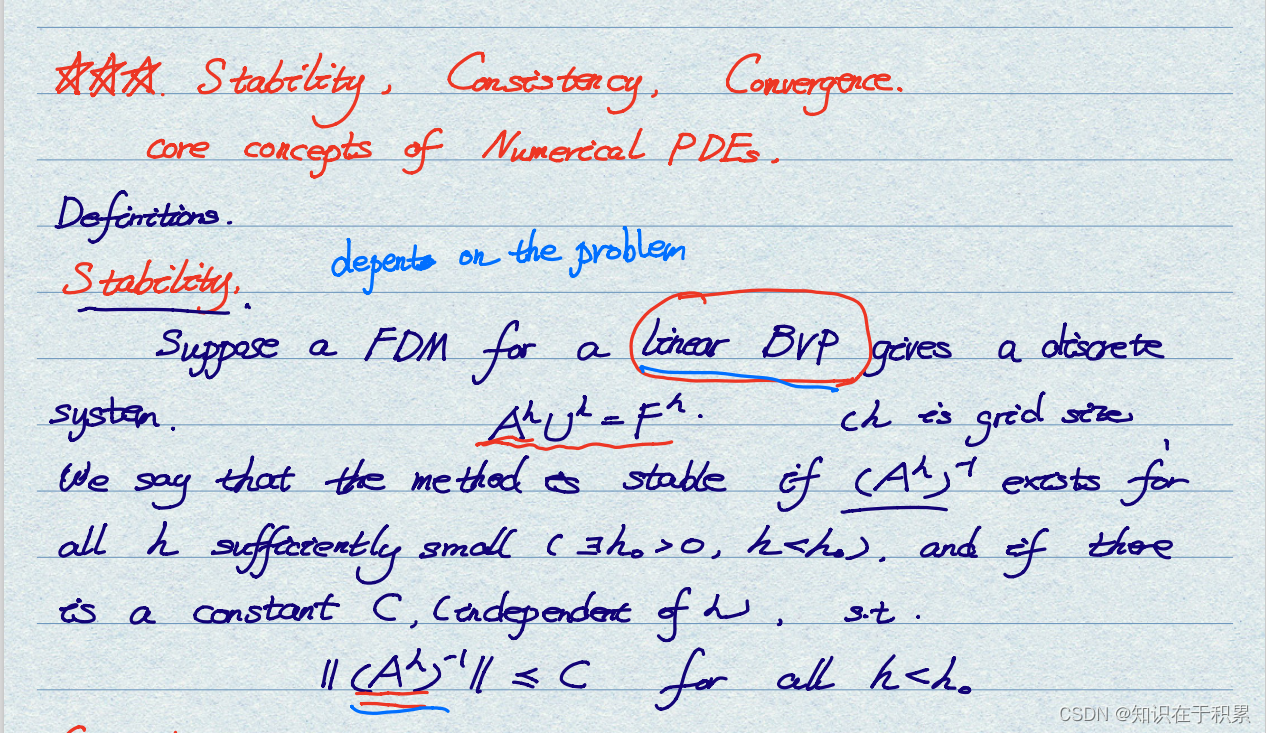 ☆☆☆. Stability, Consistency, Convergence.
core concepts of Numerical PDEs.
Definitions.
depents on the problem
Stability.
Suppose a FDM for a linear BVP gives a discrete
system. AʰUʰ = Fʰ. (h is grid size)
We say that the method is stable if (Aʰ)⁻¹ exists for
all h sufficiently small (∃h₀>0, h<h₀). and if there
is a constant C, (independent of h), s.t.
‖(Aʰ)⁻¹‖ ≤ C for all h<h₀
CSDN @知识在于积累